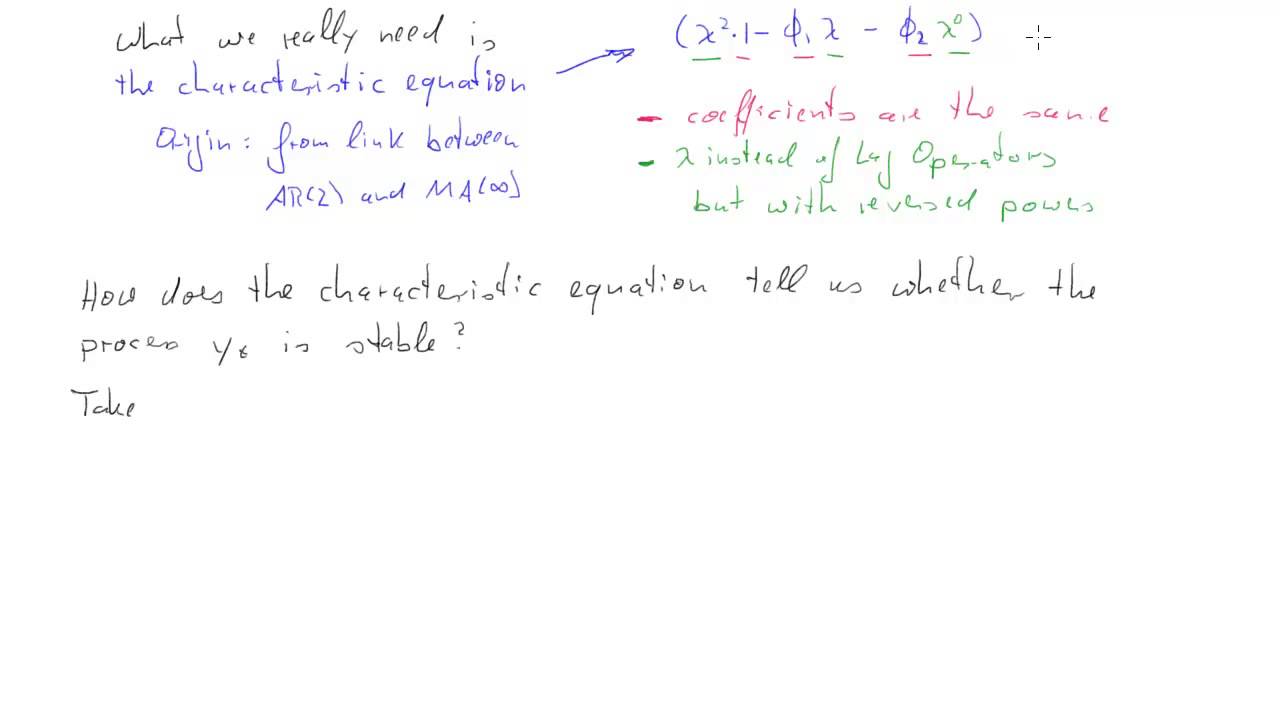 What we really need is
the characteristic equation
Origin: from link between
AR(2) and MA(∞)
(λ²·1 - ϕ₁ λ - ϕ₂ λ⁰)
- coefficients are the same
- λ instead of Lag Operators
but with reversed powers
How does the characteristic equation tell us whether the
process yₜ is stable?
Take